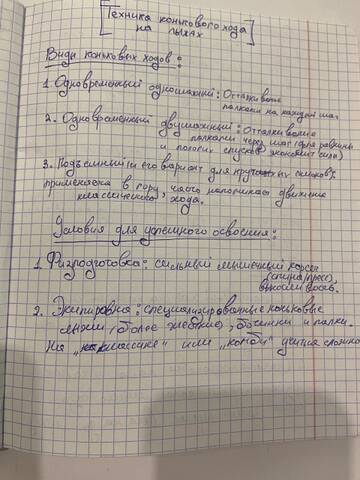 Техника конькового хода
на лыжах
Виды коньковых ходов:
1. Одновременный одношажный: Отталкивание
палками на каждый шаг.
2. Одновременный двушажный: Отталкивание
палками через шаг (для равнины
и пологих спусков экономит силы)
3. Подъемный и его вариант для крутых склонов:
применяется в гору, часто напоминает движение
классического хода.
Условия для успешного освоения:
1. Физподготовка: сильный мышечный корсет
(спина/пресс),
2. Экипировка: специализированные коньковые
лыжи (более жесткие), ботинки и палки.
На „классике" или „комби" учиться сложно